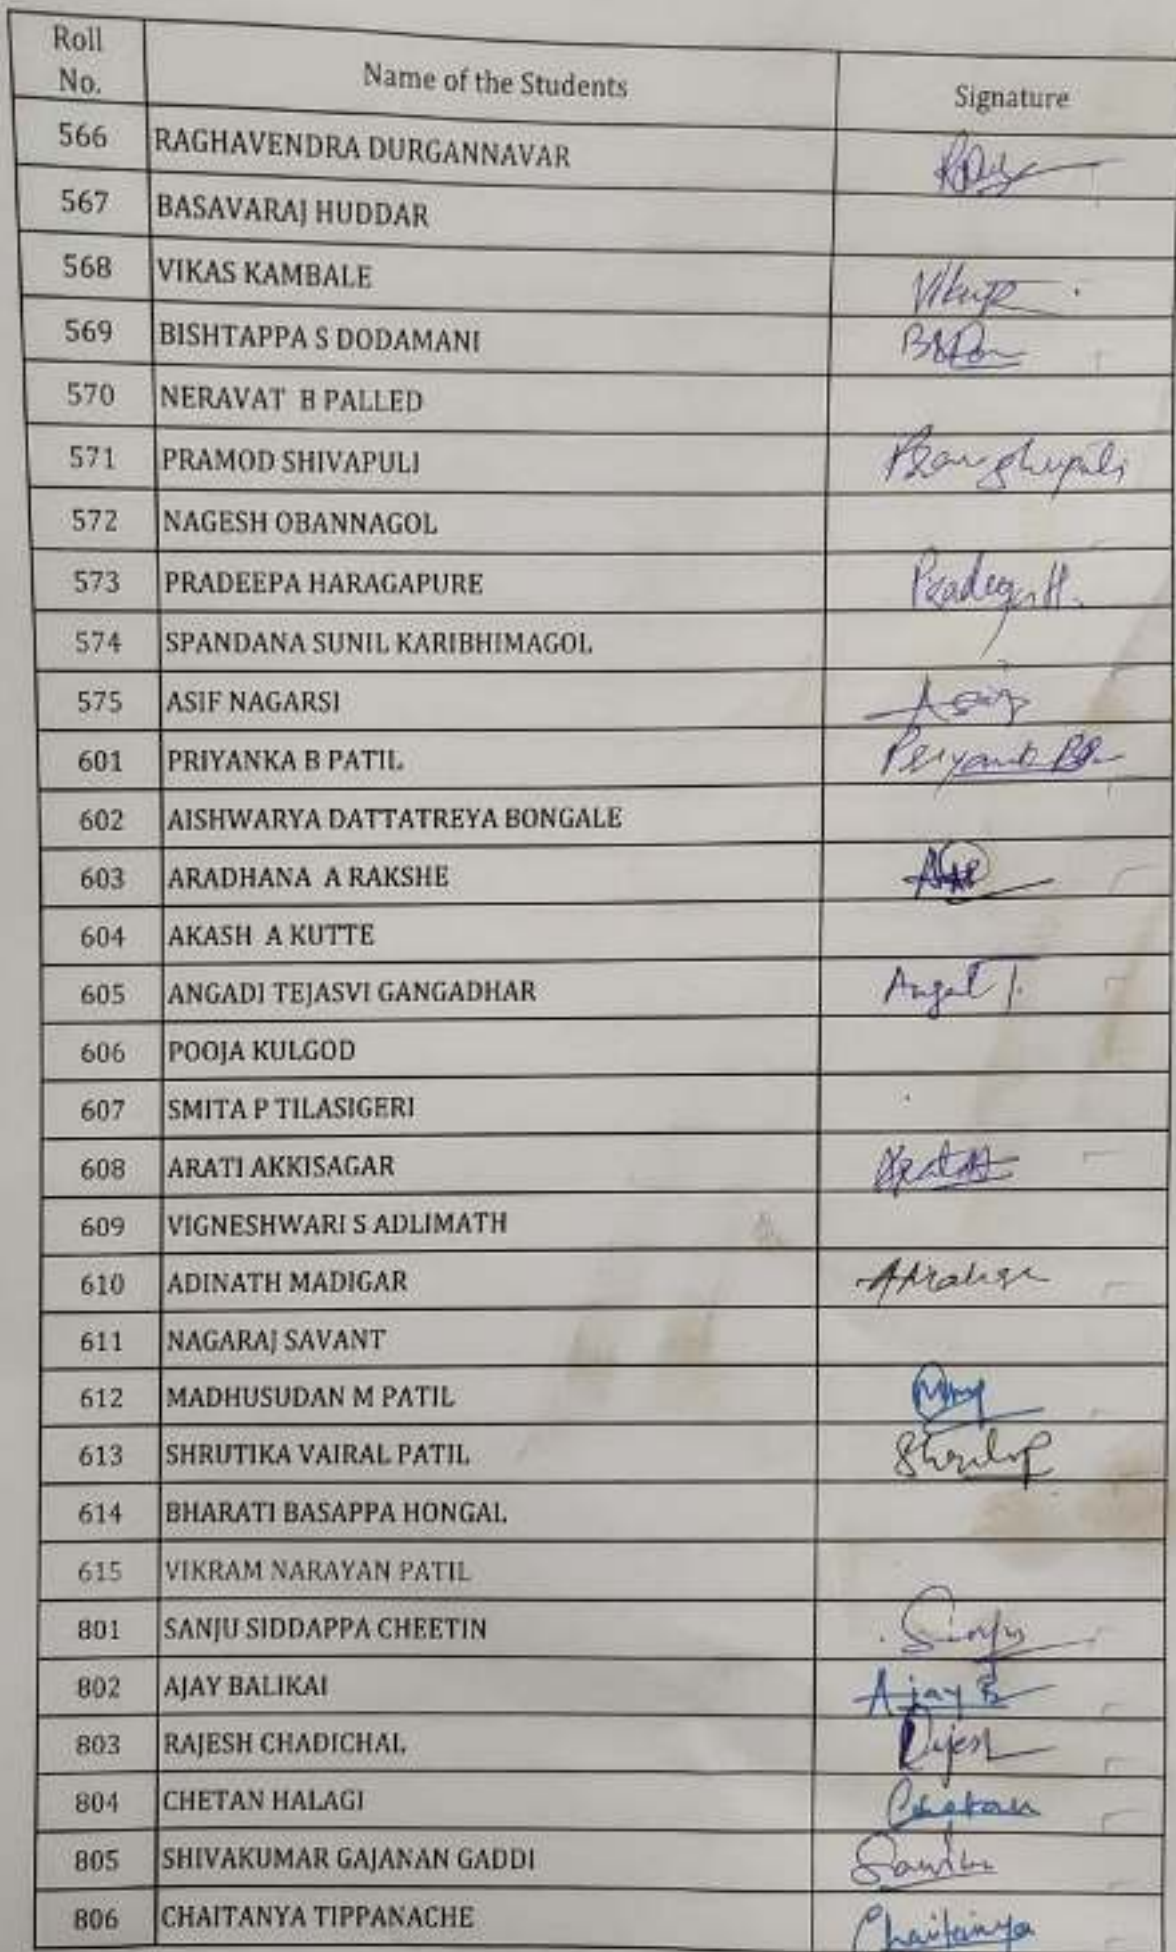 Roll No. Name of the Students Signature
566 RAGHAVENDRA DURGANNAVAR
567 BASAVARAJ HUDDAR
568 VIKAS KAMBALE
569 BISHTAPPA S DODAMANI
570 NERAVAT B PALLED
571 PRAMOD SHIVAPULI
572 NAGESH OBANNAGOL
573 PRADEEPA HARAGAPURE
574 SPANDANA SUNIL KARIBHIMAGOL
575 ASIF NAGARSI
601 PRIYANKA B PATIL
602 AISHWARYA DATTATREYA BONGALE
603 ARADHANA A RAKSHE
604 AKASH A KUTTE
605 ANGADI TEJASVI GANGADHAR
606 POOJA KULGOD
607 SMITA P TILASIGERI
608 ARATI AKKISAGAR
609 VIGNESHWARI S ADLIMATH
610 ADINATH MADIGAR
611 NAGARAJ SAVANT
612 MADHUSUDAN M PATIL
613 SHRUTIKA VAIRAL PATIL
614 BHARATI BASAPPA HONGAL
615 VIKRAM NARAYAN PATIL
801 SANJU SIDDAPPA CHEETIN
802 AJAY BALIKAI Ajay B
803 RAJESH CHADICHAL Rajesh
804 CHETAN HALAGI Chetan
805 SHIVAKUMAR GAJANAN GADDI
806 CHAITANYA TIPPANACHE Chaitanya